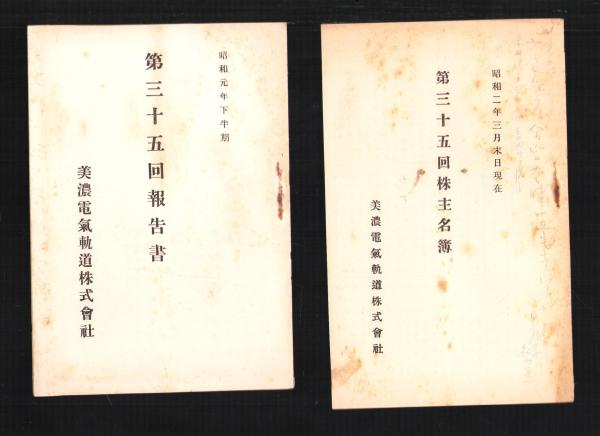 昭和元年下半期
第三十五回報告書
美濃電氣軌道株式會社
昭和二年三月末日現在
第三十五回株主名簿
美濃電氣軌道株式會社